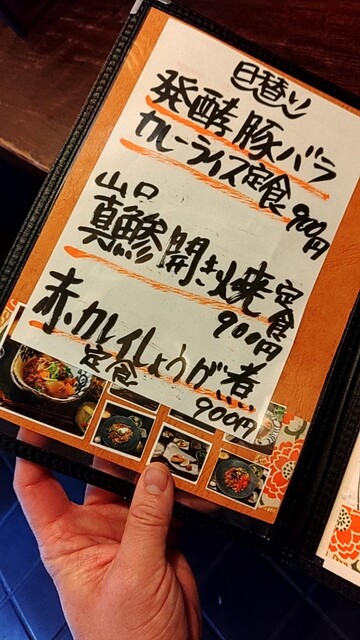 日替り
発酵豚バラ
カレーライス定食
900円
山口
真鯵開き焼定食
900円
赤カレイしょうが煮
定食
900円